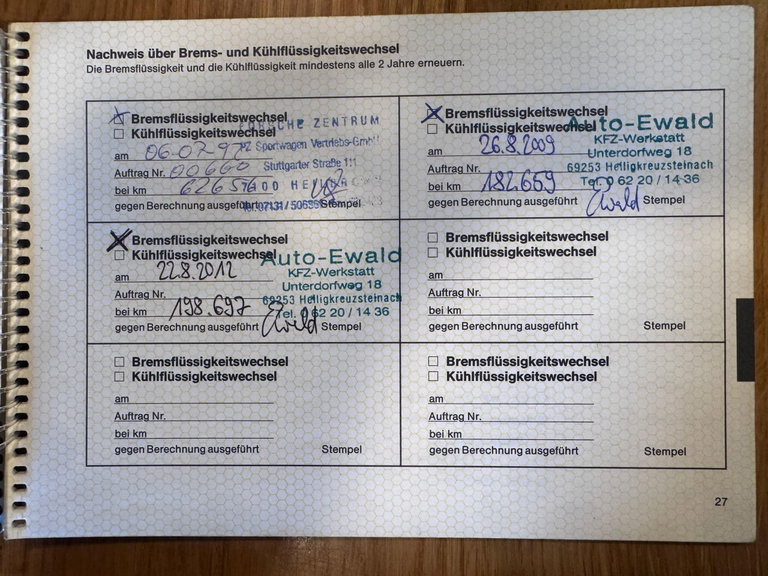 Nachweis über Brems- und Kühlflüssigkeitswechsel
Die Bremsflüssigkeit und die Kühlflüssigkeit mindestens alle 2 Jahre erneuern.
Bremsflüssigkeitswechsel
Kühlflüssigkeitswechsel
am 06-07-97
Auftrag Nr. 00660
bei km 62656
gegen Berechnung ausgeführt
Stempel
PORSCHE ZENTRUM
PZ Sportwagen Vertriebs-GmbH
Stuttgarter Straße 111
Bremsflüssigkeitswechsel
Kühlflüssigkeitswechsel
am 26.8.2009
Auftrag Nr.
bei km 182.659
gegen Berechnung ausgeführt
Stempel
Auto-Ewald
KFZ-Werkstatt
Unterdorfweg 18
69253 Heiligkreuzsteinach
Tel. 0 62 20 / 14 36
Ewald
Bremsflüssigkeitswechsel
Kühlflüssigkeitswechsel
am 22.8.2012
Auftrag Nr.
bei km 198.697
gegen Berechnung ausgeführt
Stempel
Auto-Ewald
KFZ-Werkstatt
Unterdorfweg 18
69253 Heiligkreuzsteinach
Tel. 0 62 20 / 14 36
Ewald
Bremsflüssigkeitswechsel
Kühlflüssigkeitswechsel
am
Auftrag Nr.
bei km
gegen Berechnung ausgeführt
Stempel
Bremsflüssigkeitswechsel
Kühlflüssigkeitswechsel
am
Auftrag Nr.
bei km
gegen Berechnung ausgeführt
Stempel
Bremsflüssigkeitswechsel
Kühlflüssigkeitswechsel
am
Auftrag Nr.
bei km
gegen Berechnung ausgeführt
Stempel
27